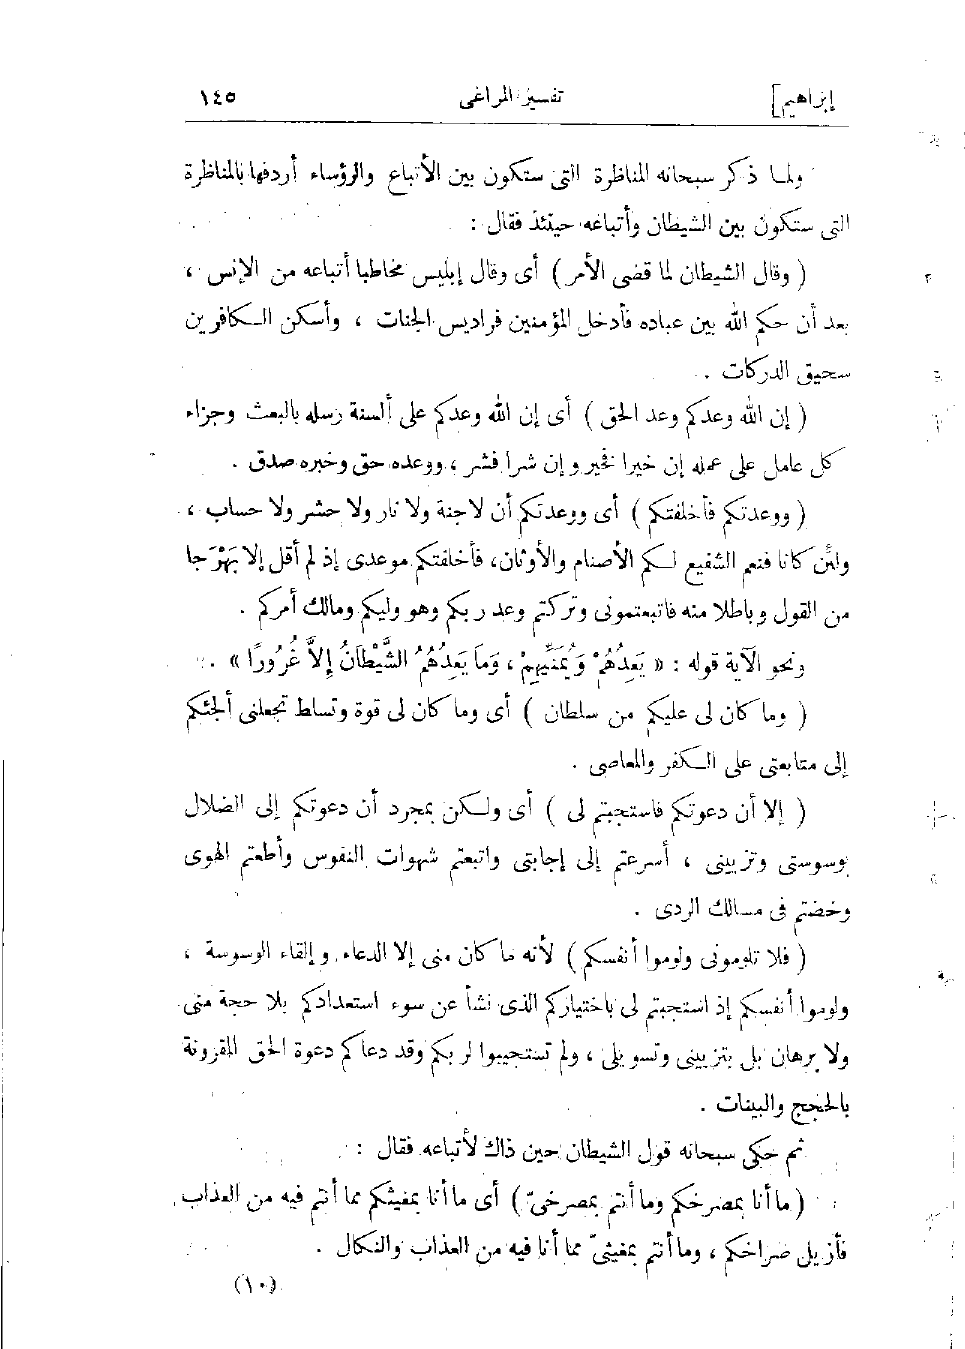 إبراهيم]
تفسير المراغى
١٤٥
ولما ذكر سبحانه المناظرة التى ستكون بين الأتباع والرؤساء أردفها بالمناظرة
التى ستكون بين الشيطان وأتباعه حينئذ فقال :
( وقال الشيطان لما قضى الأمر ) أى وقال إبليس مخاطبا أتباعه من الإنس ،
بعد أن حكم الله بين عباده فأدخل المؤمنين فراديس الجنات ، وأسكن الكافرين
سحيق الدركات .
( إن الله وعدكم وعد الحق ) أى إن الله وعدكم على ألسنة رسله بالبعث وجزاء
كل عامل على عمله إن خيرا فخير وإن شرا فشر ، ووعده حق وخبره صدق .
( ووعدتكم فأخلفتكم ) أى ووعدتكم أن لا جنة ولا نار ولا حشر ولا حساب ،
ولئن كانا فنعم الشفيع لكم الأصنام والأوثان، فأخلفتكم موعدى إذ لم أقل إلا بَهْرَجا
من القول وباطلا منه فاتبعتمونى وتركتم وعد ربكم وهو وليكم ومالك أمركم .
ونحو الآية قوله : « يَعِدُهُمْ وَيُمَنِّيهِمْ ، وَمَا يَعِدُهُمُ الشَّيْطَانُ إِلاَّ غُرُورًا » .
( وما كان لى عليكم من سلطان ) أى وما كان لى قوة وتسلط تجعلنى ألجئكم
إلى متابعتى على الكفر والمعاصى .
( إلا أن دعوتكم فاستجبتم لى ) أى ولكن بمجرد أن دعوتكم إلى الضلال
بوسوستى وتزيينى ، أسرعتم إلى إجابتى واتبعتم شهوات النفوس وأطعتم الهوى
وخضتم فى مسالك الردى .
( فلا تلومونى ولوموا أنفسكم ) لأنه ما كان منى إلا الدعاء وإلقاء الوسوسة ،
ولوموا أنفسكم إذ استجبتم لى باختياركم الذى نشأ عن سوء استعدادكم بلا حجة منى
ولا برهان بل بتزيينى وتسويلى ، ولم تستجيبوا لربكم وقد دعاكم دعوة الحق المقرونة
بالحجج والبينات .
ثم حكى سبحانه قول الشيطان حين ذاك لأتباعه فقال :
( ما أنا بمصرخكم وما أنتم بمصرخىّ ) أى ما أنا بمغيثكم مما أنتم فيه من العذاب
فأزيل صراخكم ، وما أنتم بمغيثىّ مما أنا فيه من العذاب والنكال .
(١٠)